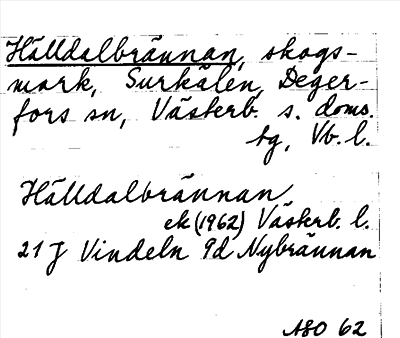 Hälldalbrännan, skogs-
mark, Surkälen, Deger-
fors sn, Västerb. s. doms.
tg, Vb. l.
Hälldalbrännan
ek (1962) Västerb. l.
21 J Vindeln 9d Nybrännan
ASO 62